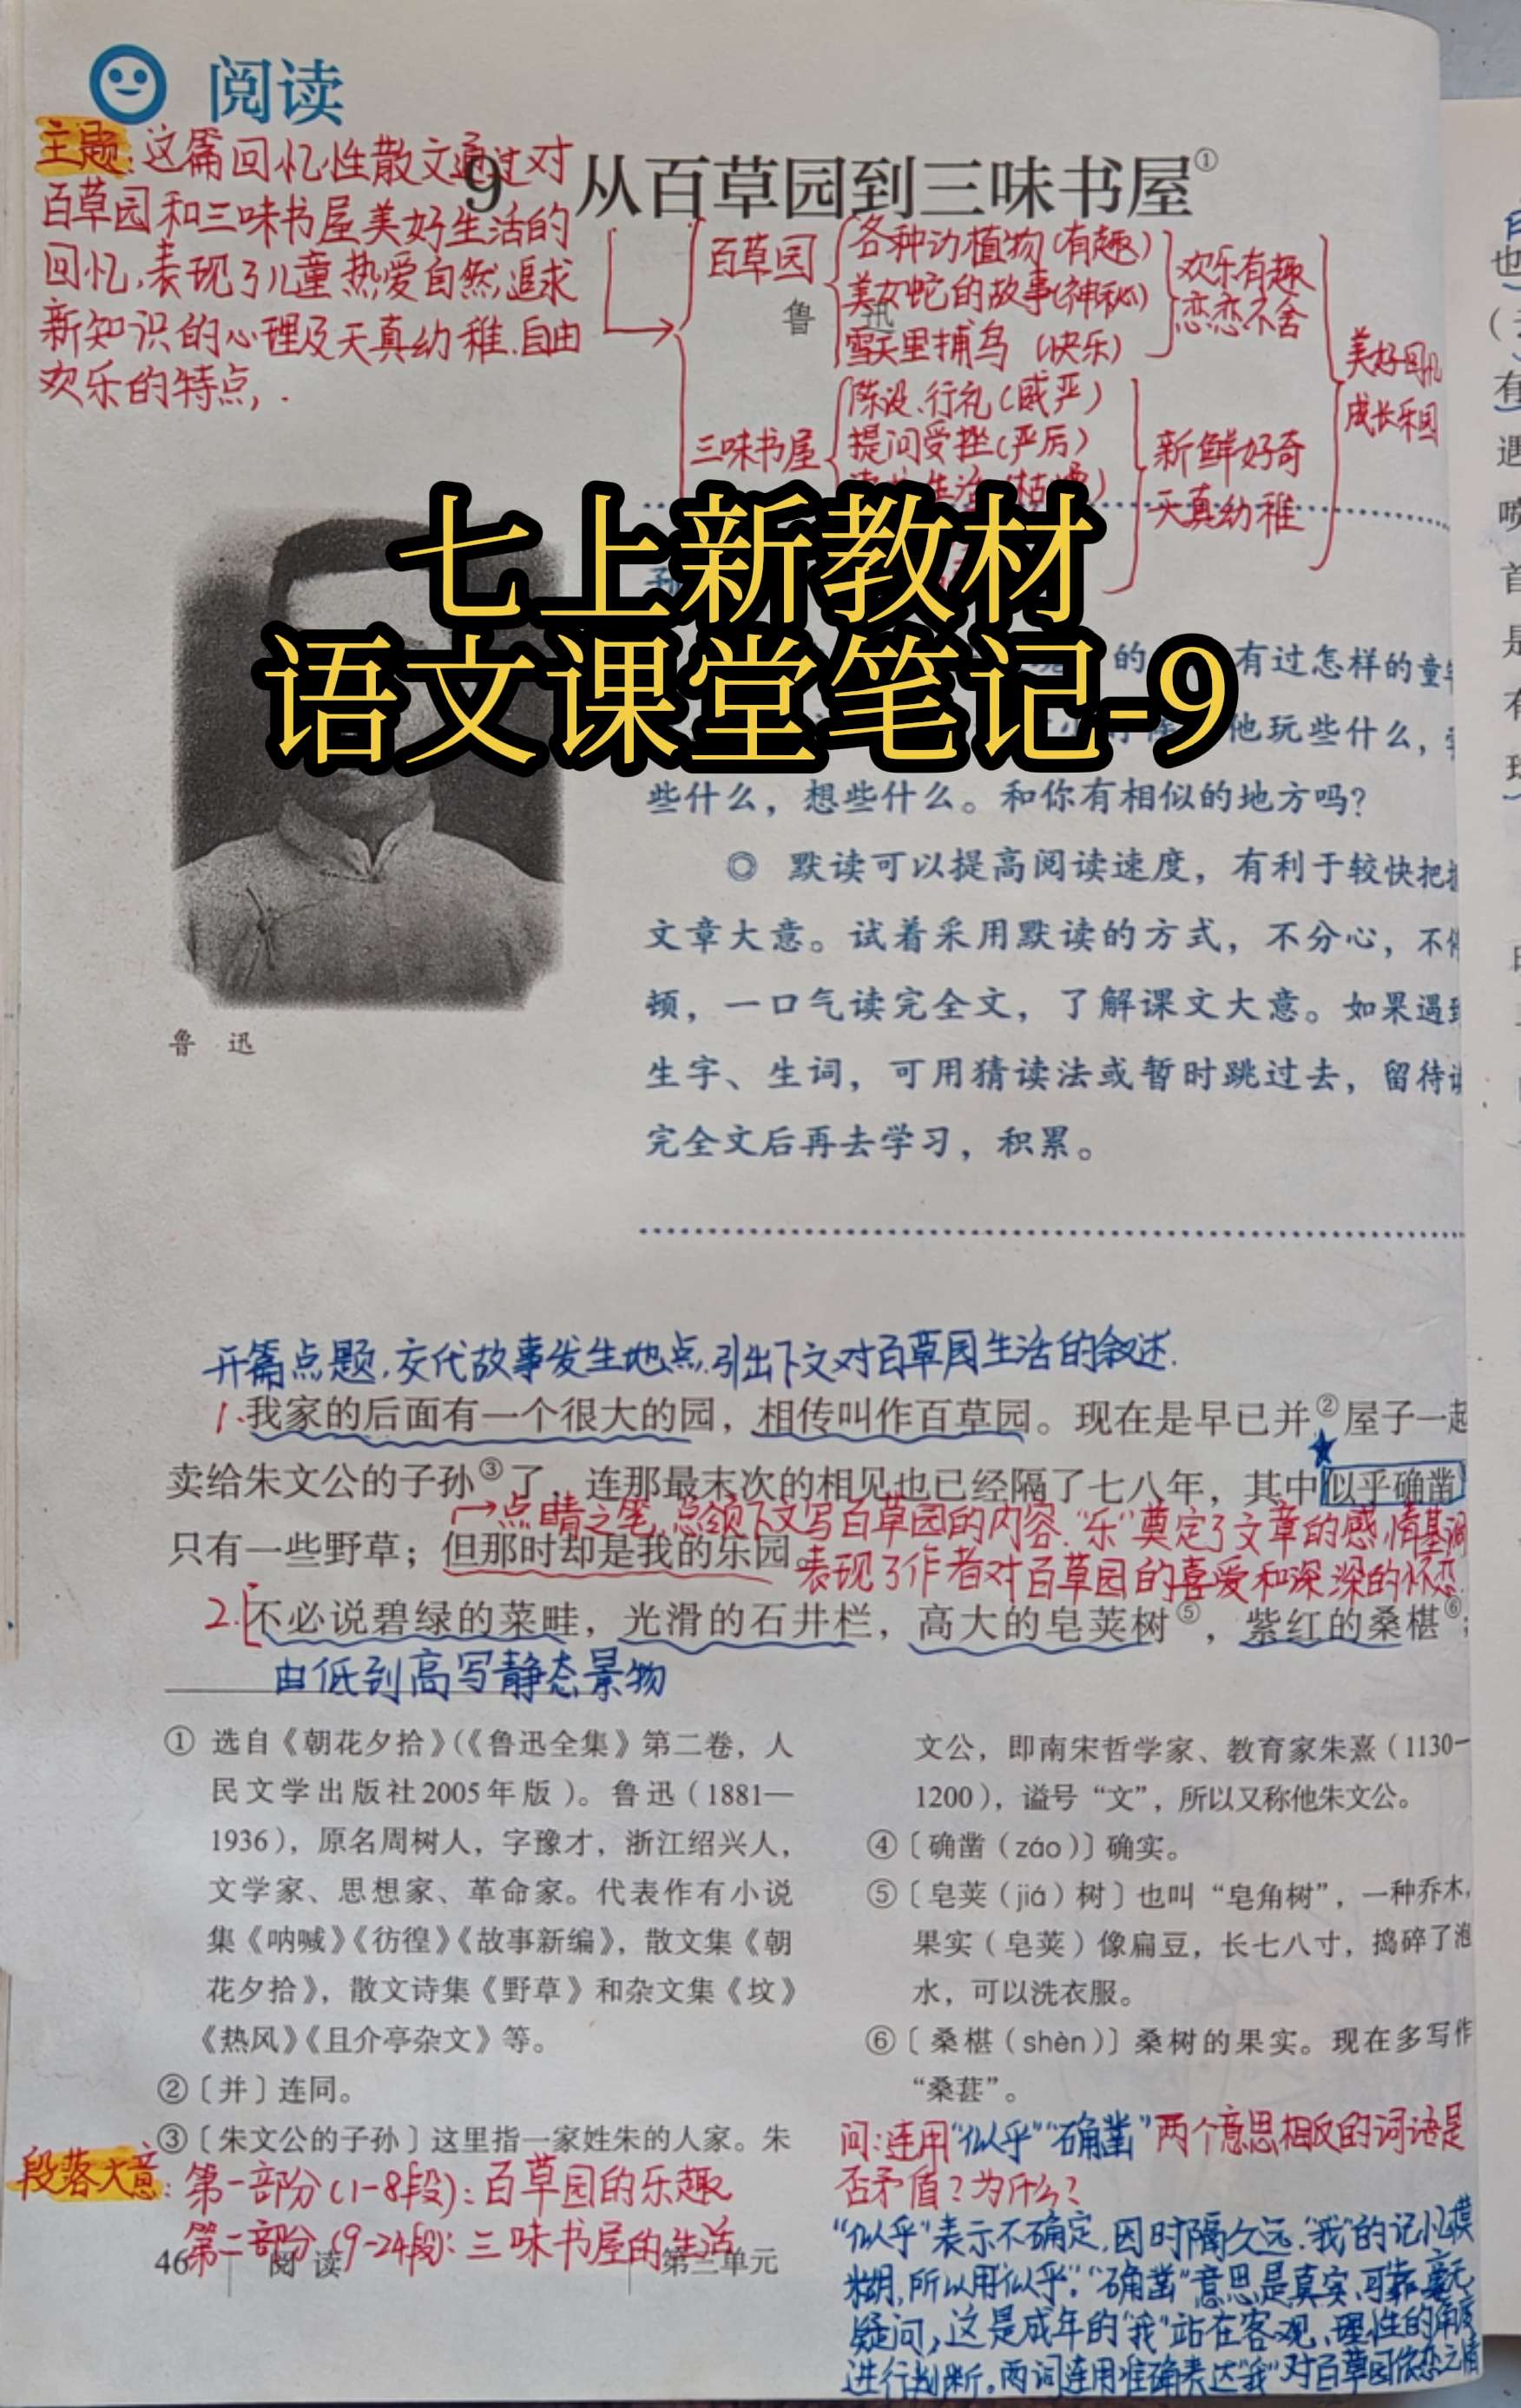 阅读
主题：这篇回忆性散文通过对
百草园和三味书屋美好生活的
回忆，表现了儿童热爱自然，追求
新知识的心理及天真幼稚、自由
欢乐的特点，.
9 从百草园到三味书屋①
鲁 迅
百草园
各种动植物(有趣)
美女蛇的故事(神秘)
雪天里捕鸟 (快乐)
欢乐有趣
恋恋不舍
三味书屋
陈设、行礼(威严)
提问受挫(严厉)
新鲜好奇
天真幼稚
美好回忆
成长乐园
七上新教材
语文课堂笔记-9
的 有过怎样的童
他玩些什么，
些什么，想些什么。和你有相似的地方吗？
◎ 默读可以提高阅读速度，有利于较快把
文章大意。试着采用默读的方式，不分心，不
顿，一口气读完全文，了解课文大意。如果遇
生字、生词，可用猜读法或暂时跳过去，留待
完全文后再去学习，积累。
鲁 迅
开篇点题，交代故事发生地点，引出下文对百草园生活的叙述.
1.我家的后面有一个很大的园，相传叫作百草园。现在是早已并②屋子一起
卖给朱文公的子孙③了，连那最末次的相见也已经隔了七八年，其中似乎确凿
→点睛之笔，总领下文写百草园的内容.“乐”奠定了文章的感情基调
只有一些野草；但那时却是我的乐园。
表现了作者对百草园的喜爱和深深的怀恋
2.[不必说碧绿的菜畦，光滑的石井栏，高大的皂荚树⑤，紫红的桑椹⑥；
由低到高写静态景物
① 选自《朝花夕拾》(《鲁迅全集》第二卷，人
民文学出版社2005年版）。鲁迅（1881—
1936），原名周树人，字豫才，浙江绍兴人，
文学家、思想家、革命家。代表作有小说
集《呐喊》《彷徨》《故事新编》，散文集《朝
花夕拾》，散文诗集《野草》和杂文集《坟》
《热风》《且介亭杂文》等。
②〔并〕连同。
③〔朱文公的子孙〕这里指一家姓朱的人家。朱
文公，即南宋哲学家、教育家朱熹（1130—
1200），谥号“文”，所以又称他朱文公。
④〔确凿（záo）〕确实。
⑤〔皂荚（jiá）树〕也叫“皂角树”，一种乔木，
果实（皂荚）像扁豆，长七八寸，捣碎了泡
水，可以洗衣服。
⑥〔桑椹（shèn）〕桑树的果实。现在多写作
“桑葚”。
段落大意：第一部分(1-8段)：百草园的乐趣
第二部分(9-24段)：三味书屋的生活
46 阅 读 第三单元
问：连用“似乎”“确凿”两个意思相反的词语是
否矛盾？为什么？
“似乎”表示不确定，因时隔久远，“我”的记忆模
糊，所以用“似乎”.“确凿”意思是真实、可靠，毫无
疑问，这是成年的“我”站在客观、理性的角度
进行判断。两词连用准确表达“我”对百草园依恋之情